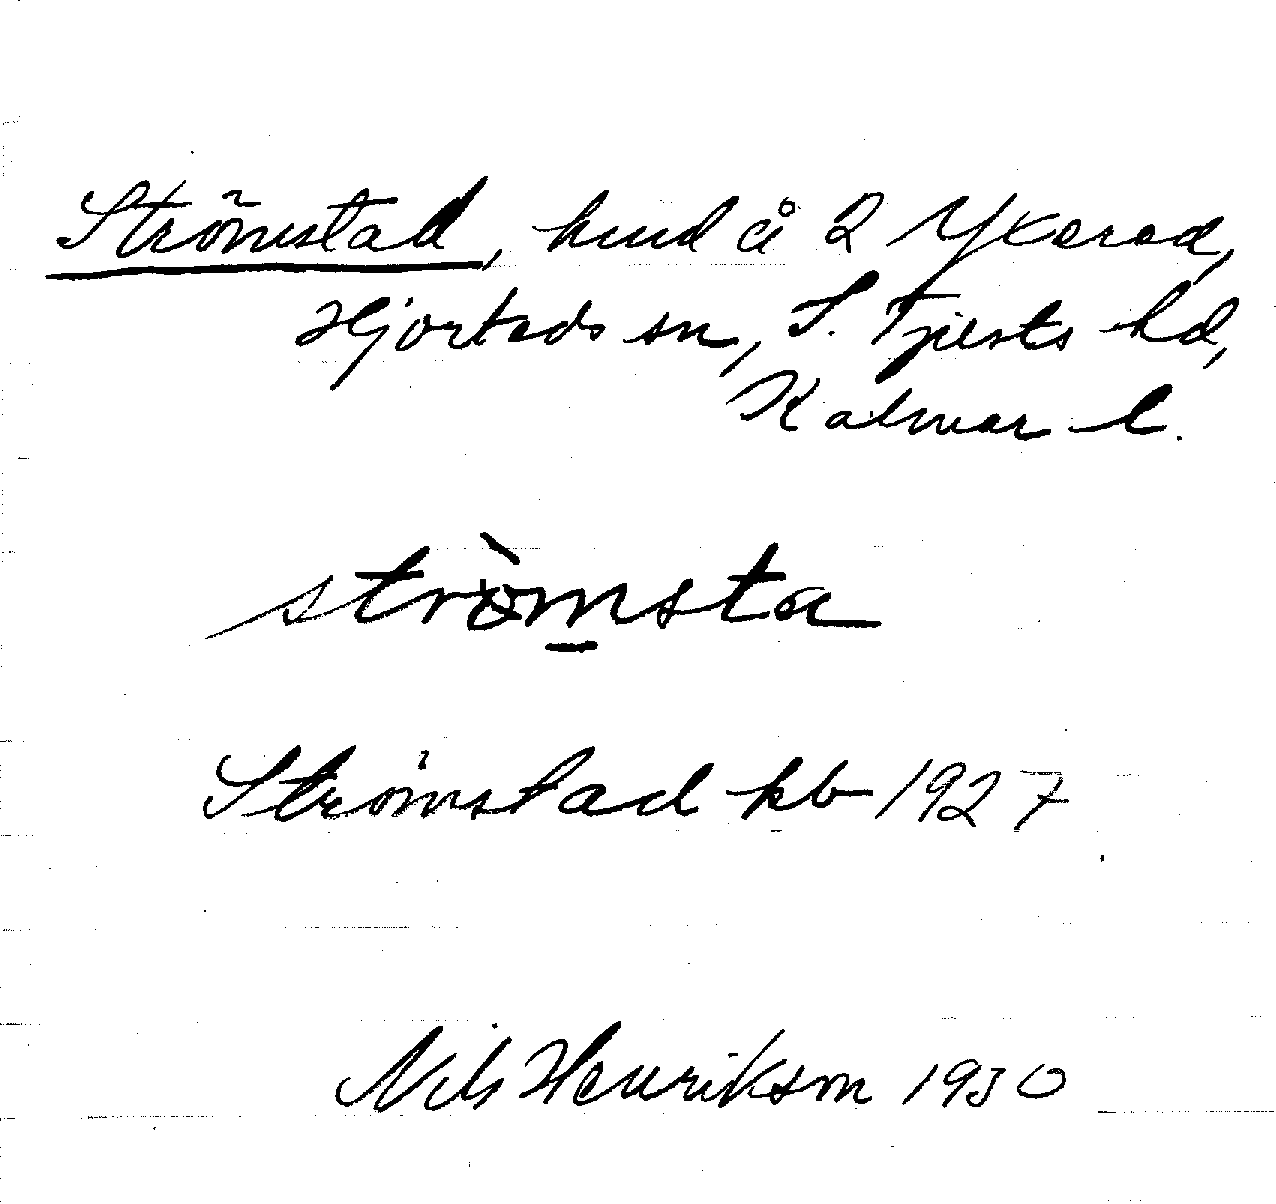 Strömstad, hmd å 2 Ykerad,
Hjorteds sn, S. Tjusts hd,
Kalmar l.
strömsta
Strömstad kb 1927
Nils Henrikson 1930